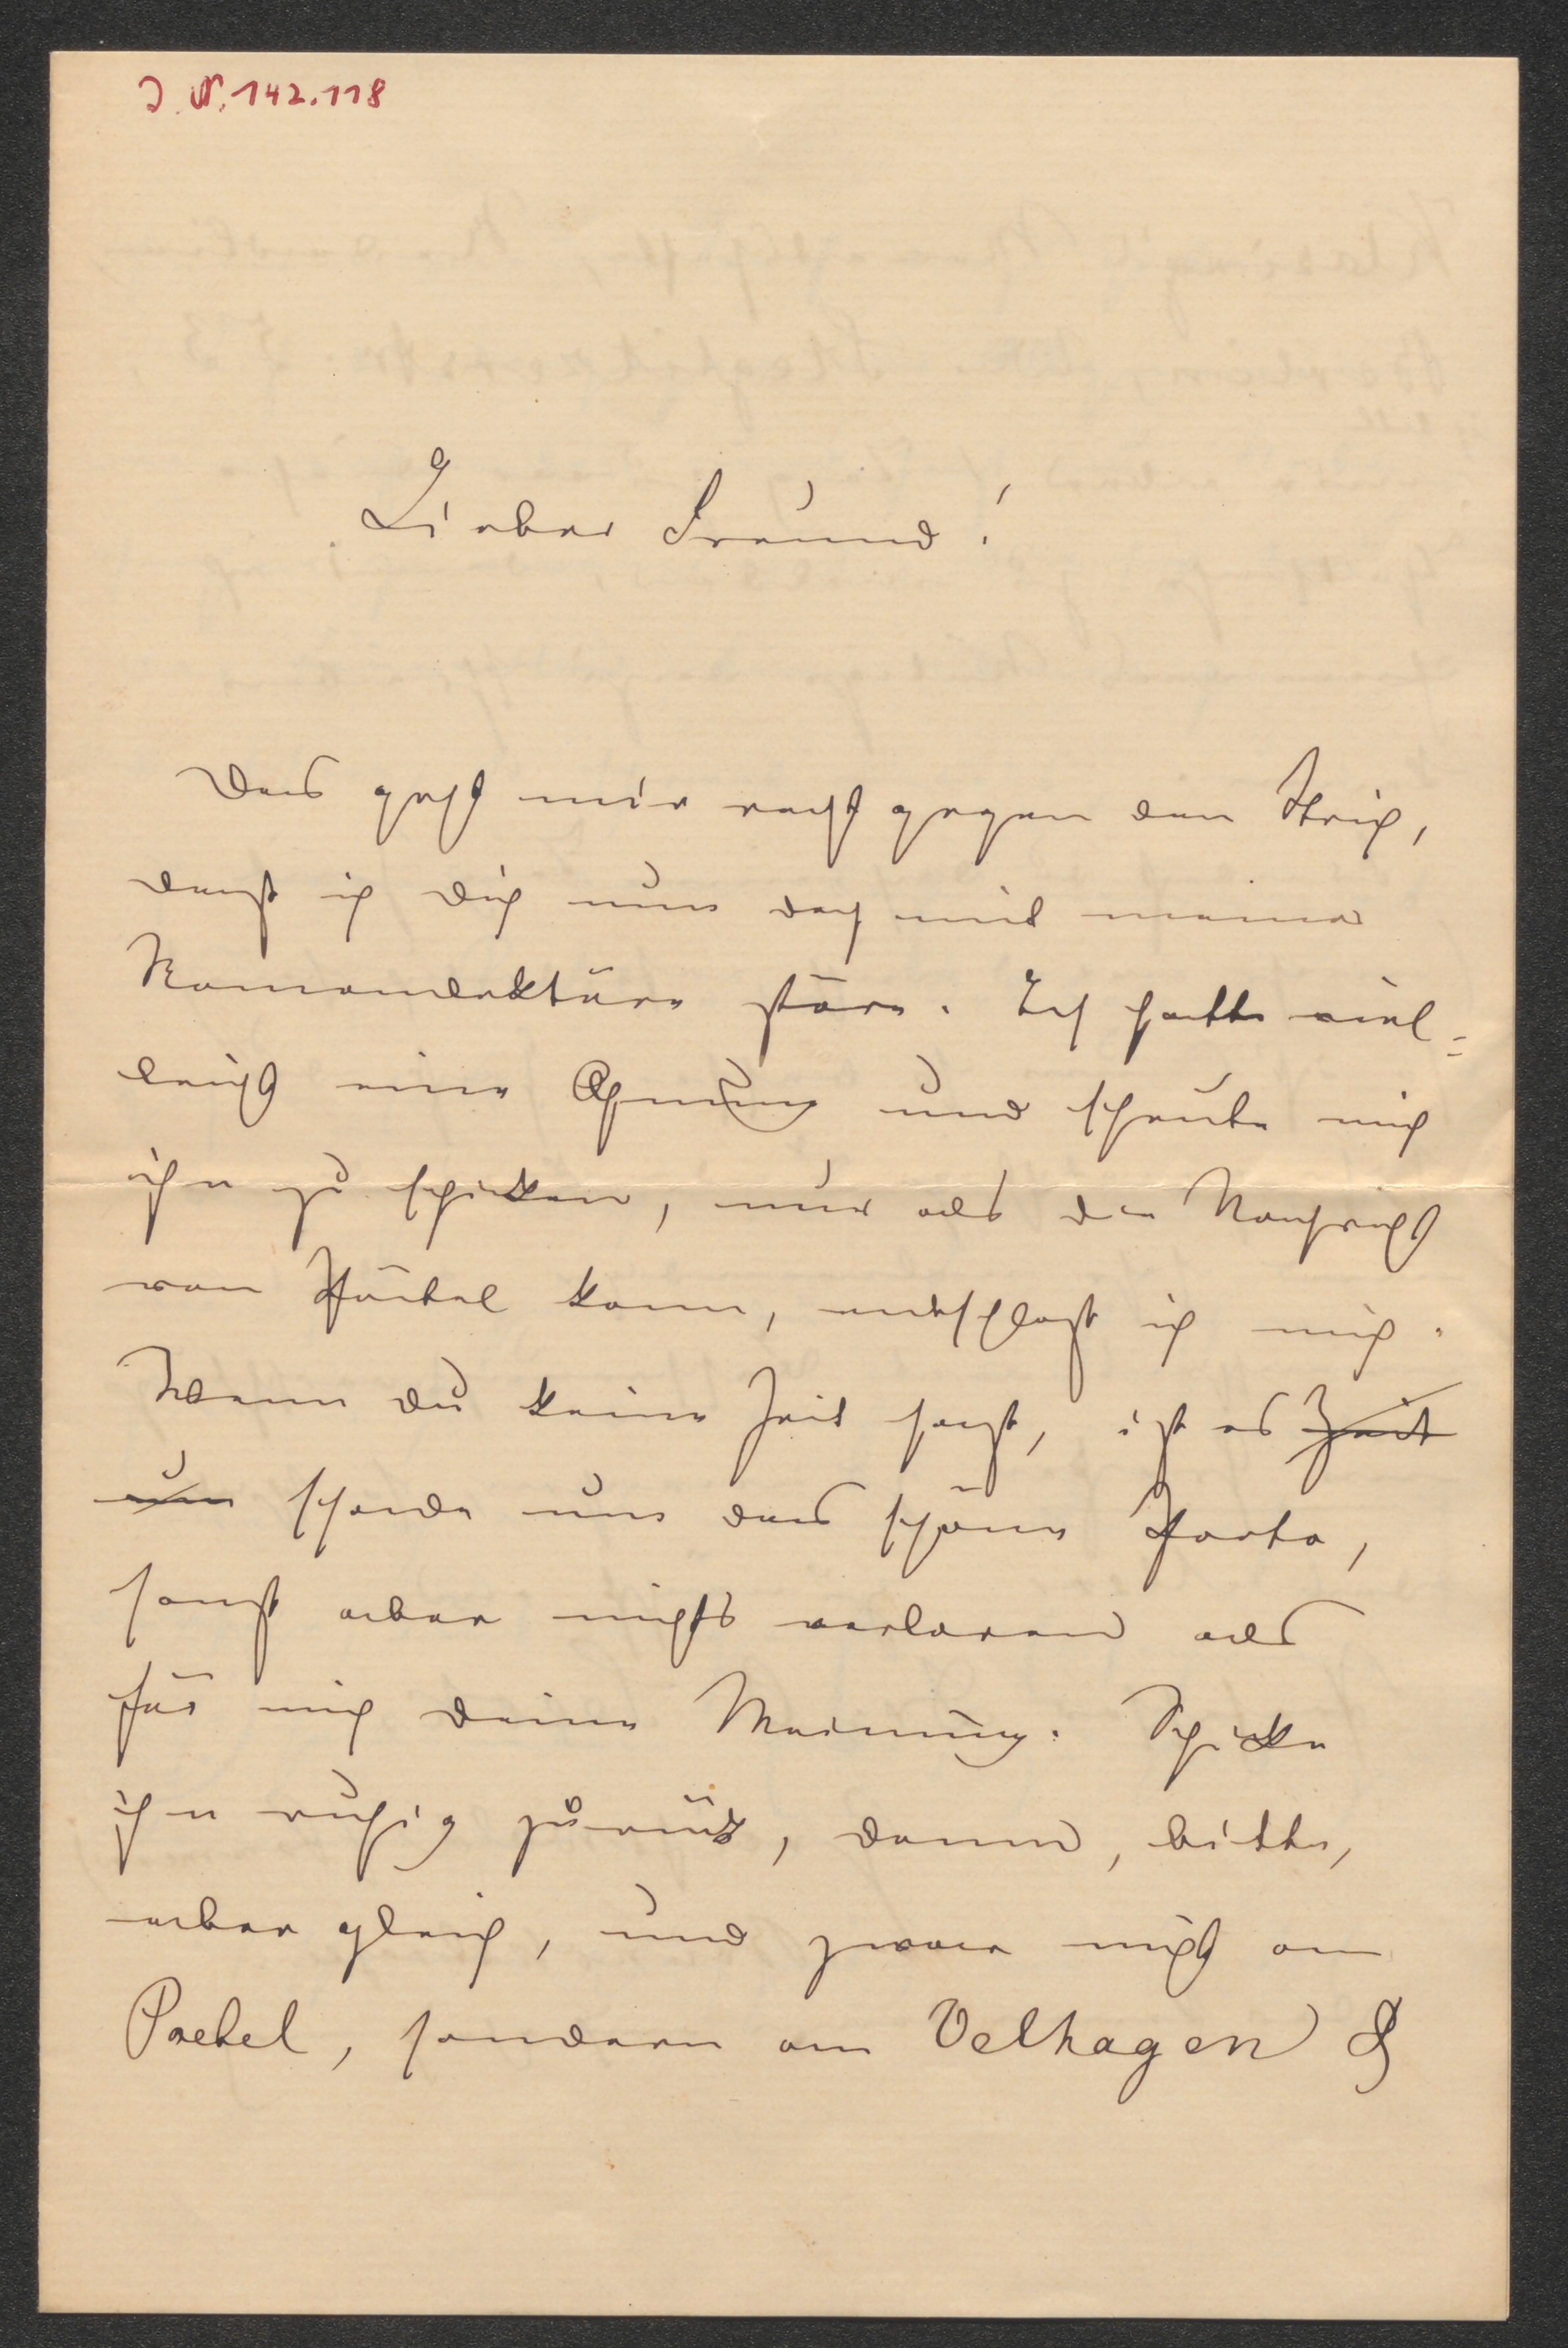 J.N. 142.118
Lieber Freund!
Das geht mir recht gegen den Strich,
dass ich Dich nun doch mit meiner
Romanlektüre störe. Ich hatte viel-
leicht eine Ahnung und scheute mich
ihn zu schicken, nur als die Nachricht
von Pästel kam, entschloss ich mich.
Wenn du keine Zeit hast, ist es Zeit
um schade um das schöne Porto,
sonst aber nichts verloren als
für mich Deine Meinung. Schicke
ihn ruhig zurück, dann, bitte,
aber gleich, und zwar nicht an
Paetel, sondern an Velhagen &